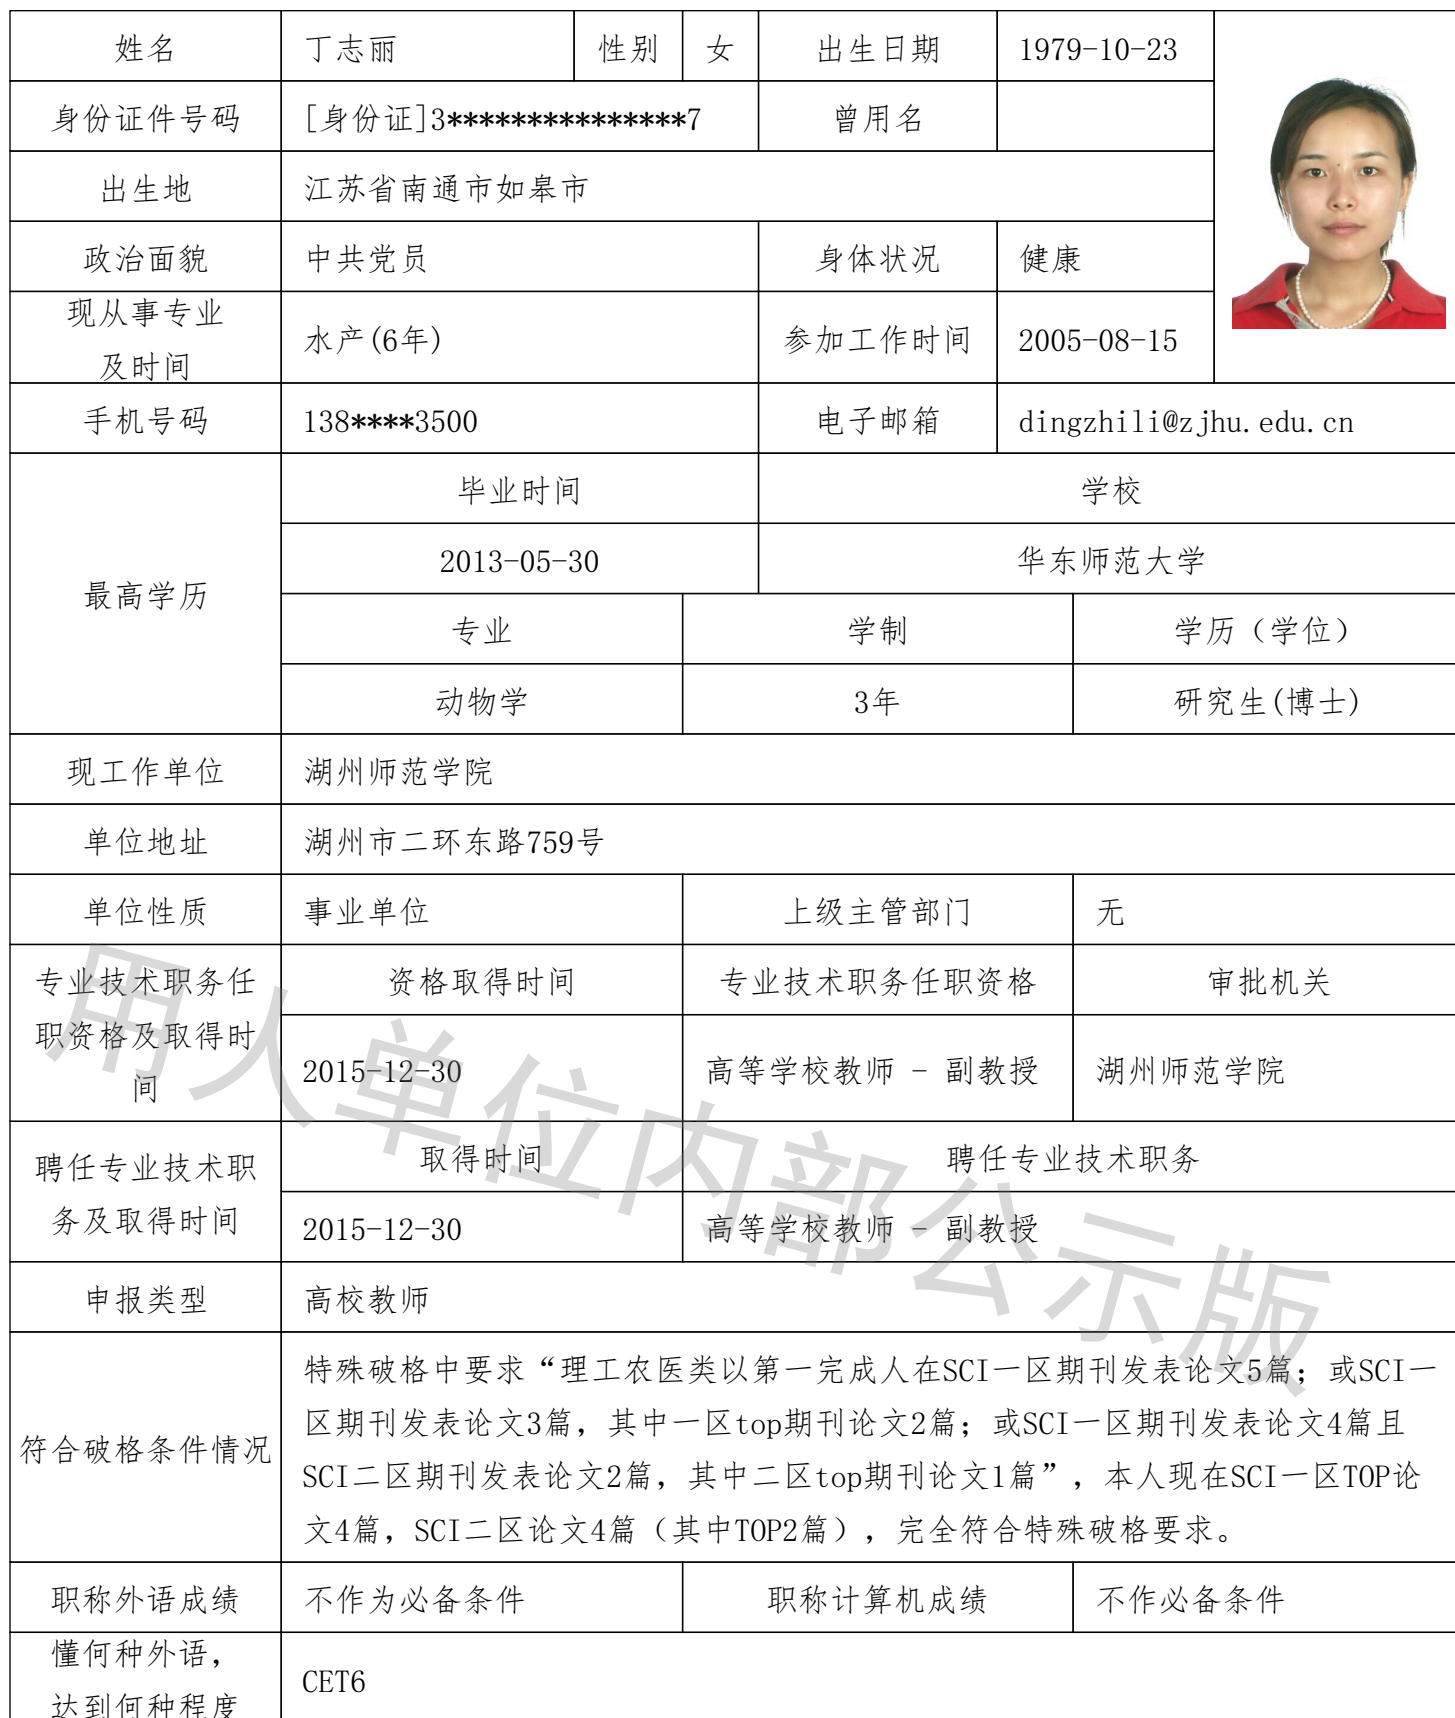 姓名 丁志丽 性别 女 出生日期 1979-10-23
身份证件号码 [身份证]3***************7 曾用名
出生地 江苏省南通市如皋市
政治面貌 中共党员 身体状况 健康
现从事专业
及时间
水产(6年) 参加工作时间 2005-08-15
手机号码 138****3500 电子邮箱 dingzhili@zjhu.edu.cn
最高学历
毕业时间 学校
2013-05-30 华东师范大学
专业 学制 学历（学位）
动物学 3年 研究生(博士)
现工作单位 湖州师范学院
单位地址 湖州市二环东路759号
单位性质 事业单位 上级主管部门 无
专业技术职务任
职资格及取得时
间
资格取得时间 专业技术职务任职资格 审批机关
2015-12-30 高等学校教师 - 副教授 湖州师范学院
聘任专业技术职
务及取得时间
取得时间 聘任专业技术职务
2015-12-30 高等学校教师 - 副教授
申报类型 高校教师
符合破格条件情况
特殊破格中要求“理工农医类以第一完成人在SCI一区期刊发表论文5篇；或SCI一
区期刊发表论文3篇，其中一区top期刊论文2篇；或SCI一区期刊发表论文4篇且
SCI二区期刊发表论文2篇，其中二区top期刊论文1篇”，本人现在SCI一区TOP论
文4篇，SCI二区论文4篇（其中TOP2篇），完全符合特殊破格要求。
职称外语成绩 不作为必备条件 职称计算机成绩 不作必备条件
懂何种外语，
达到何种程度
CET6
用人单位内部公示版